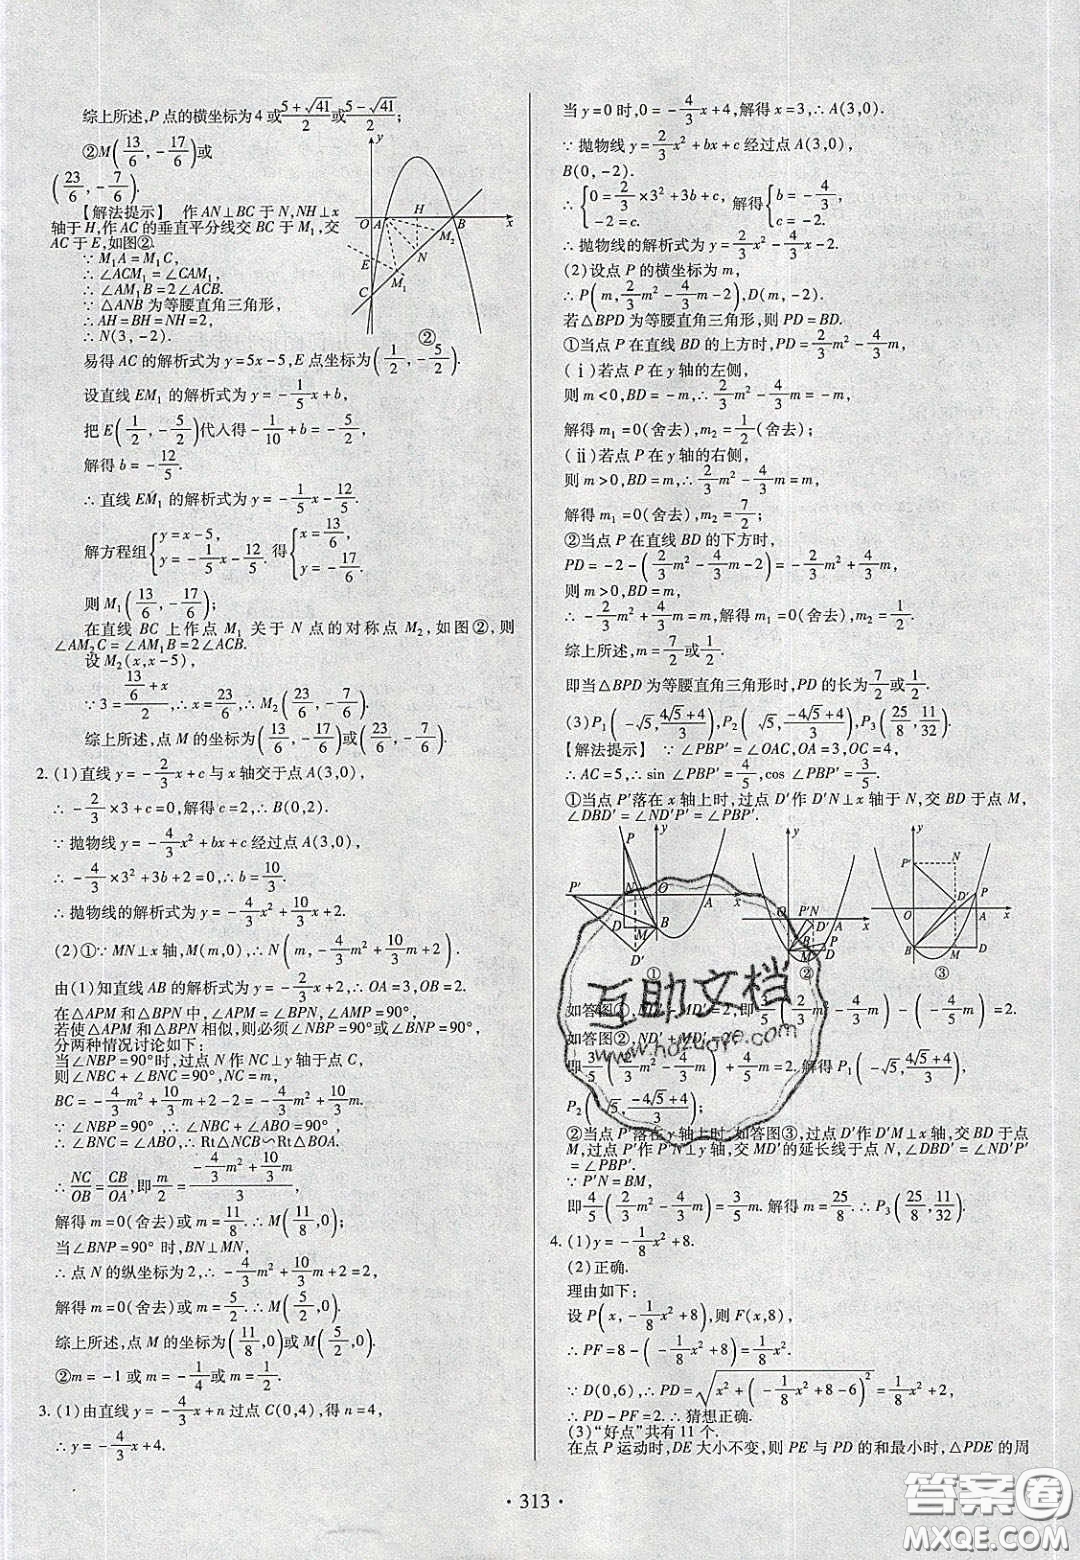 综上所述,P点的横坐标为4或(5+√41)/2或(5-√41)/2;
②M(13/6,-17/6)或
(23/6,-7/6).
【解法提示】 作AN⊥BC于N,NH⊥x
轴于H,作AC的垂直平分线交BC于M₁,交
AC于E,如图②.
∵M₁A=M₁C,
∴∠ACM₁=∠CAM₁,
∴∠AM₁B=2∠ACB.
∵△ANB为等腰直角三角形,
∴AH=BH=NH=2,
∴N(3,-2).
y
H
O A B x
M₂
E N
M₁
C
②
易得AC的解析式为y=5x-5,E点坐标为(1/2,-5/2),
设直线EM₁的解析式为y=-1/5x+b,
把E(1/2,-5/2)代入得-1/10+b=-5/2,
解得b=-12/5.
∴直线EM₁的解析式为y=-1/5x-12/5.
解方程组{y=x-5, y=-1/5x-12/5. 得{x=13/6, y=-17/6.
则M₁(13/6,-17/6);
在直线BC上作点M₁关于N点的对称点M₂,如图②,则
∠AM₂C=∠AM₁B=2∠ACB.
设M₂(x,x-5),
∵3=(13/6+x)/2,∴x=23/6,∴M₂(23/6,-7/6).
综上所述,点M的坐标为(13/6,-17/6)或(23/6,-7/6).
2.(1)直线y=-2/3x+c与x轴交于点A(3,0),
∴-2/3×3+c=0,解得c=2,∴B(0,2).
∵抛物线y=-4/3x²+bx+c经过点A(3,0),
∴-4/3×3²+3b+2=0,∴b=10/3.
∴抛物线的解析式为y=-4/3x²+10/3x+2.
(2)①∵MN⊥x轴,M(m,0),∴N(m,-4/3m²+10/3m+2).
由(1)知直线AB的解析式为y=-2/3x+2,∴OA=3,OB=2.
在△APM和△BPN中,∠APM=∠BPN,∠AMP=90°.
若使△APM和△BPN相似,则必须∠NBP=90°或∠BNP=90°,
分两种情况讨论如下:
当∠NBP=90°时,过点N作NC⊥y轴于点C,
则∠NBC+∠BNC=90°,NC=m,
BC=-4/3m²+10/3m+2-2=-4/3m²+10/3m.
∵∠NBP=90°,∴∠NBC+∠ABO=90°.
∴∠BNC=∠ABO,∴Rt△NCB∽Rt△BOA.
∴NC/OB=CB/OA,即m/2=(-4/3m²+10/3m)/3,
解得m=0(舍去)或m=11/8.∴M(11/8,0);
当∠BNP=90°时,BN⊥MN,
∴点N的纵坐标为2,∴-4/3m²+10/3m+2=2,
解得m=0(舍去)或m=5/2.∴M(5/2,0).
综上所述,点M的坐标为(11/8,0)或M(5/2,0).
②m=-1或m=-1/4或m=1/2.
3.(1)由直线y=-4/3x+n过点C(0,4),得n=4,
∴y=-4/3x+4.
当y=0时,0=-4/3x+4,解得x=3,∴A(3,0).
∵抛物线y=2/3x²+bx+c经过点A(3,0),
B(0,-2).
∴{0=2/3×3²+3b+c, -2=c. 解得{b=-4/3, c=-2.
∴抛物线的解析式为y=2/3x²-4/3x-2.
(2)设点P的横坐标为m,
∴P(m,2/3m²-4/3m-2),D(m,-2).
若△BPD为等腰直角三角形,则PD=BD.
①当点P在直线BD的上方时,PD=2/3m²-4/3m,
(ⅰ)若点P在y轴的左侧,
则m<0,BD=-m,∴2/3m²-4/3m=-m,
解得m₁=0(舍去),m₂=1/2(舍去);
(ⅱ)若点P在y轴的右侧,
则m>0,BD=m,∴2/3m²-4/3m=m,
解得m₁=0(舍去),m₂=7/2;
②当点P在直线BD的下方时,
PD=-2-(2/3m²-4/3m-2)=-2/3m²+4/3m,
则m>0,BD=m,
∴-2/3m²+4/3m=m,解得m₁=0(舍去),m₂=1/2.
综上所述,m=7/2或1/2.
即当△BPD为等腰直角三角形时,PD的长为7/2或1/2.
(3)P₁(-√5,(4√5+4)/3),P₂(√5,(-4√5+4)/3),P₃(25/8,11/32)
【解法提示】 ∵∠PBP'=∠OAC,OA=3,OC=4,
∴AC=5,∴sin∠PBP'=4/5,cos∠PBP'=3/5.
①当点P'落在x轴上时,过点D'作D'N⊥x轴于N,交BD于点M,
∠DBD'=∠ND'P'=∠PBP'.
P y
P' N O A x
D M B
D'
①
y
O P'N D' x
B P
M D
②
y
P' N
D' P
O A x
B M D
③
如答图①,ND'-MD'=2,即3/5(2/3m²-4/3m)-(-4/5m)=2.
如答图②,ND'+MD'=2,
即3/5(2/3m²-4/3m)+4/5m=2.解得P₁(-√5,(4√5+4)/3),
P₂(√5,(-4√5+4)/3);
②当点P'落在y轴上时,如答图③,过点D'作D'M⊥x轴,交BD于点
M,过点P'作P'N⊥y轴,交MD'的延长线于点N,∠DBD'=∠ND'P'
=∠PBP'.
∵P'N=BM,
即4/5(2/3m²-4/3m)=3/5m.解得m=25/8.∴P₃(25/8,11/32).
4.(1)y=-1/8x²+8.
(2)正确.
理由如下:
设P(x,-1/8x²+8),则F(x,8),
∴PF=8-(-1/8x²+8)=1/8x².
∵D(0,6),∴PD=√(x²+(-1/8x²+8-6)²)=1/8x²+2,
∴PD-PF=2.∴猜想正确.
(3)“好点”共有11个.
在点P运动时,DE大小不变,则PE与PD的和最小时,△PDE的周
·313·
互助文档
www.hdzuoye.com
答案圈
MXQE.COM